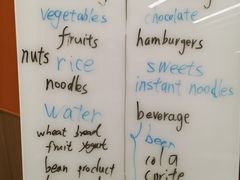 vegetables
fruits
nuts rice
noodles
water
wheat bread
fruit yogurt
bean product
chocolate
hamburgers
sweets
instant noodles
beverage
beer
cola
sprite